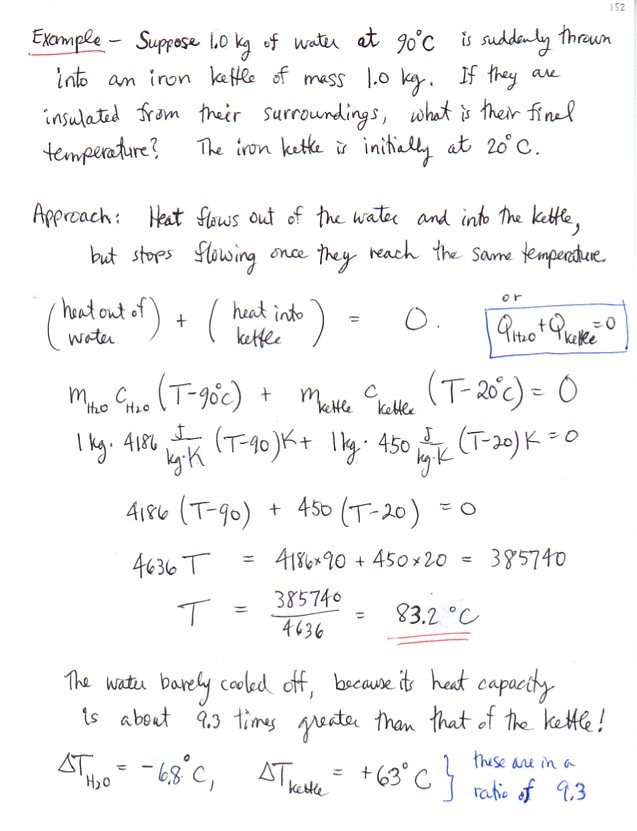 152
Example – Suppose 1.0 kg of water at 90°C is suddenly thrown
into an iron kettle of mass 1.0 kg. If they are
insulated from their surroundings, what is their final
temperature? The iron kettle is initially at 20°C.
Approach: Heat flows out of the water and into the kettle,
but stops flowing once they reach the same temperature.
(heat out of water) + (heat into kettle) = 0. or Q_H2O + Q_kettle = 0
m_H2O C_H2O (T-90°C) + m_kettle C_kettle (T-20°C) = 0
1 kg · 4186 J/kg·K (T-90)K + 1 kg · 450 J/kg·K (T-20)K = 0
4186 (T-90) + 450 (T-20) = 0
4636 T = 4186×90 + 450×20 = 385740
T = 385740/4636 = 83.2 °C
The water barely cooled off, because its heat capacity
is about 9.3 times greater than that of the kettle!
ΔT_H2O = -6.8°C, ΔT_kettle = +63°C } these are in a
ratio of 9.3